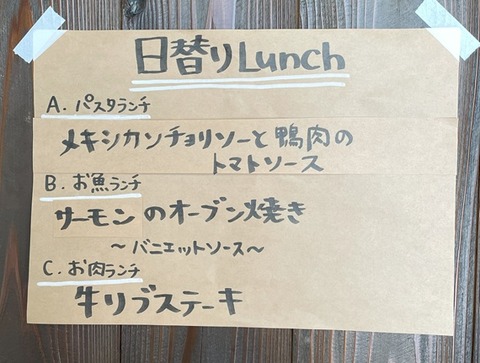 日替りLunch
A. パスタランチ
メキシカンチョリソーと鴨肉の
トマトソース
B. お魚ランチ
サーモンのオーブン焼き
～バニエットソース～
C. お肉ランチ
牛リブステーキ